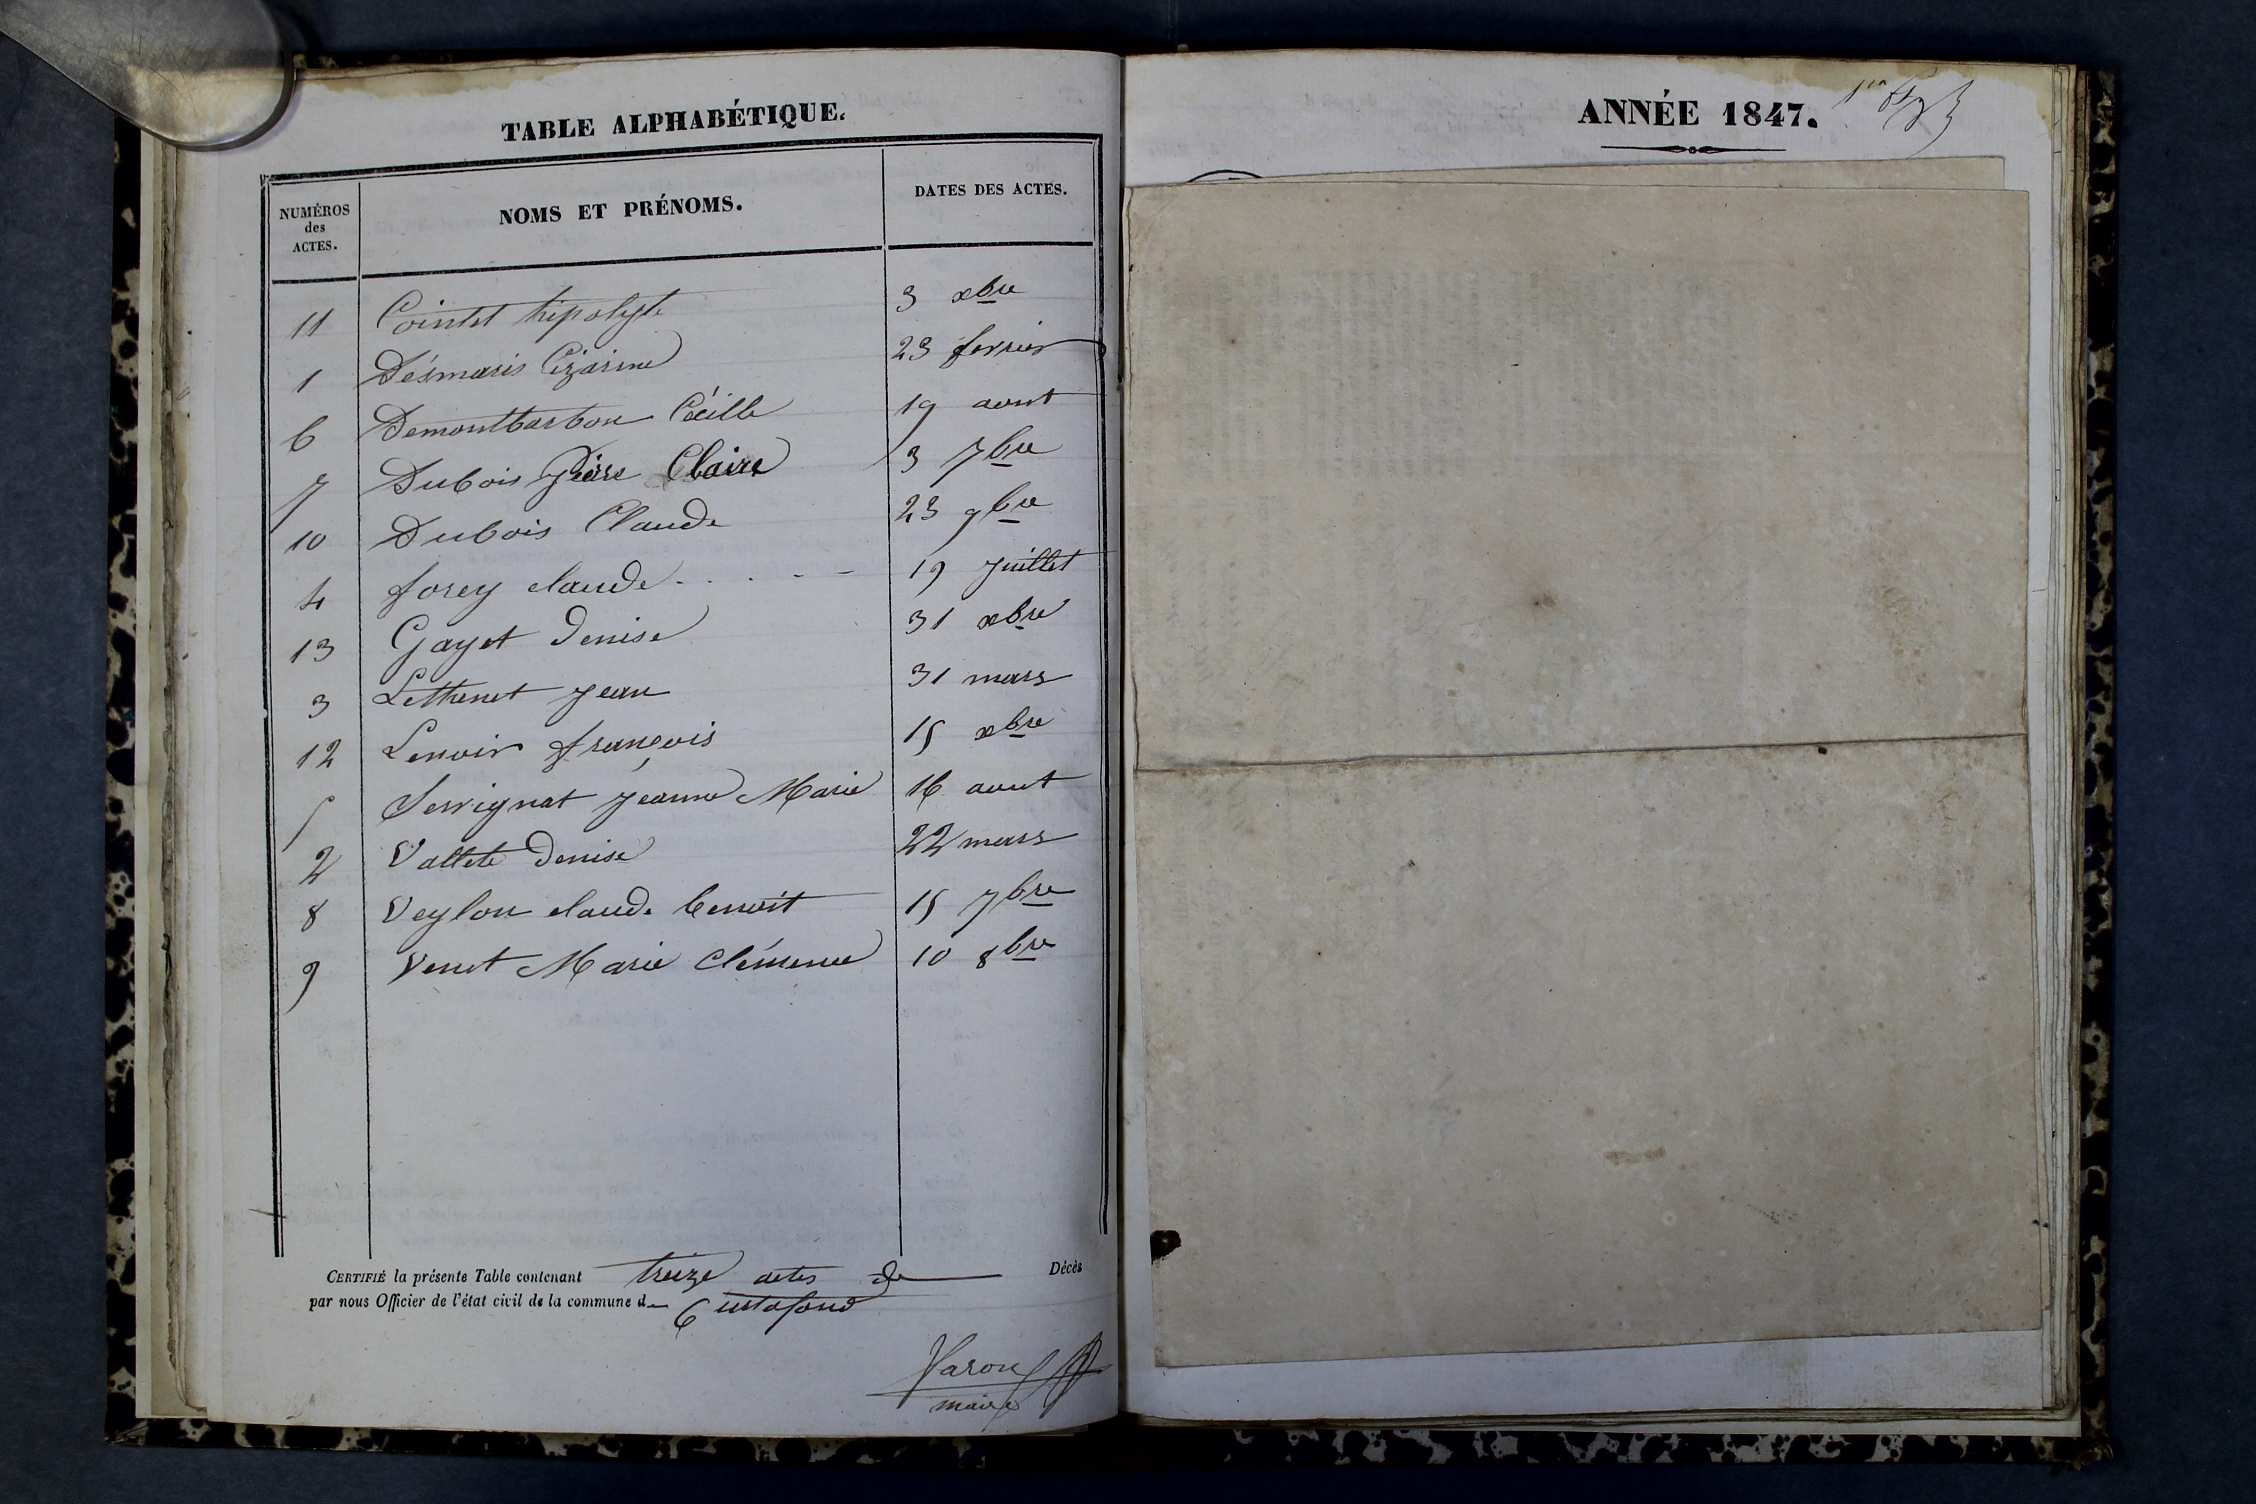 TABLE ALPHABÉTIQUE.
NUMÉROS des ACTES.
NOMS ET PRÉNOMS.
DATES DES ACTES.
11 Cointet hipolyte 3 xbre
1 Désmaris Cézarine 23 fevrier
6 Demontbarbon Cécille 19 aout
7 Dubois Pierre Claire 3 7bre
10 Dubois Claude 23 9bre
4 forey claude 19 juillet
13 Gayet Denise 31 xbre
3 Lethenet jean 31 mars
12 Lenoir françois 15 xbre
5 Serrignat jeanne Marie 16 aout
2 Vallete Denise 22 mars
8 Veylon claude benoit 15 7bre
9 Venet Marie Clémence 10 8bre
CERTIFIÉ la présente Table contenant treize actes de Décès
par nous Officier de l'état civil de la commune de Curtafond
Varon
maire
ANNÉE 1847.